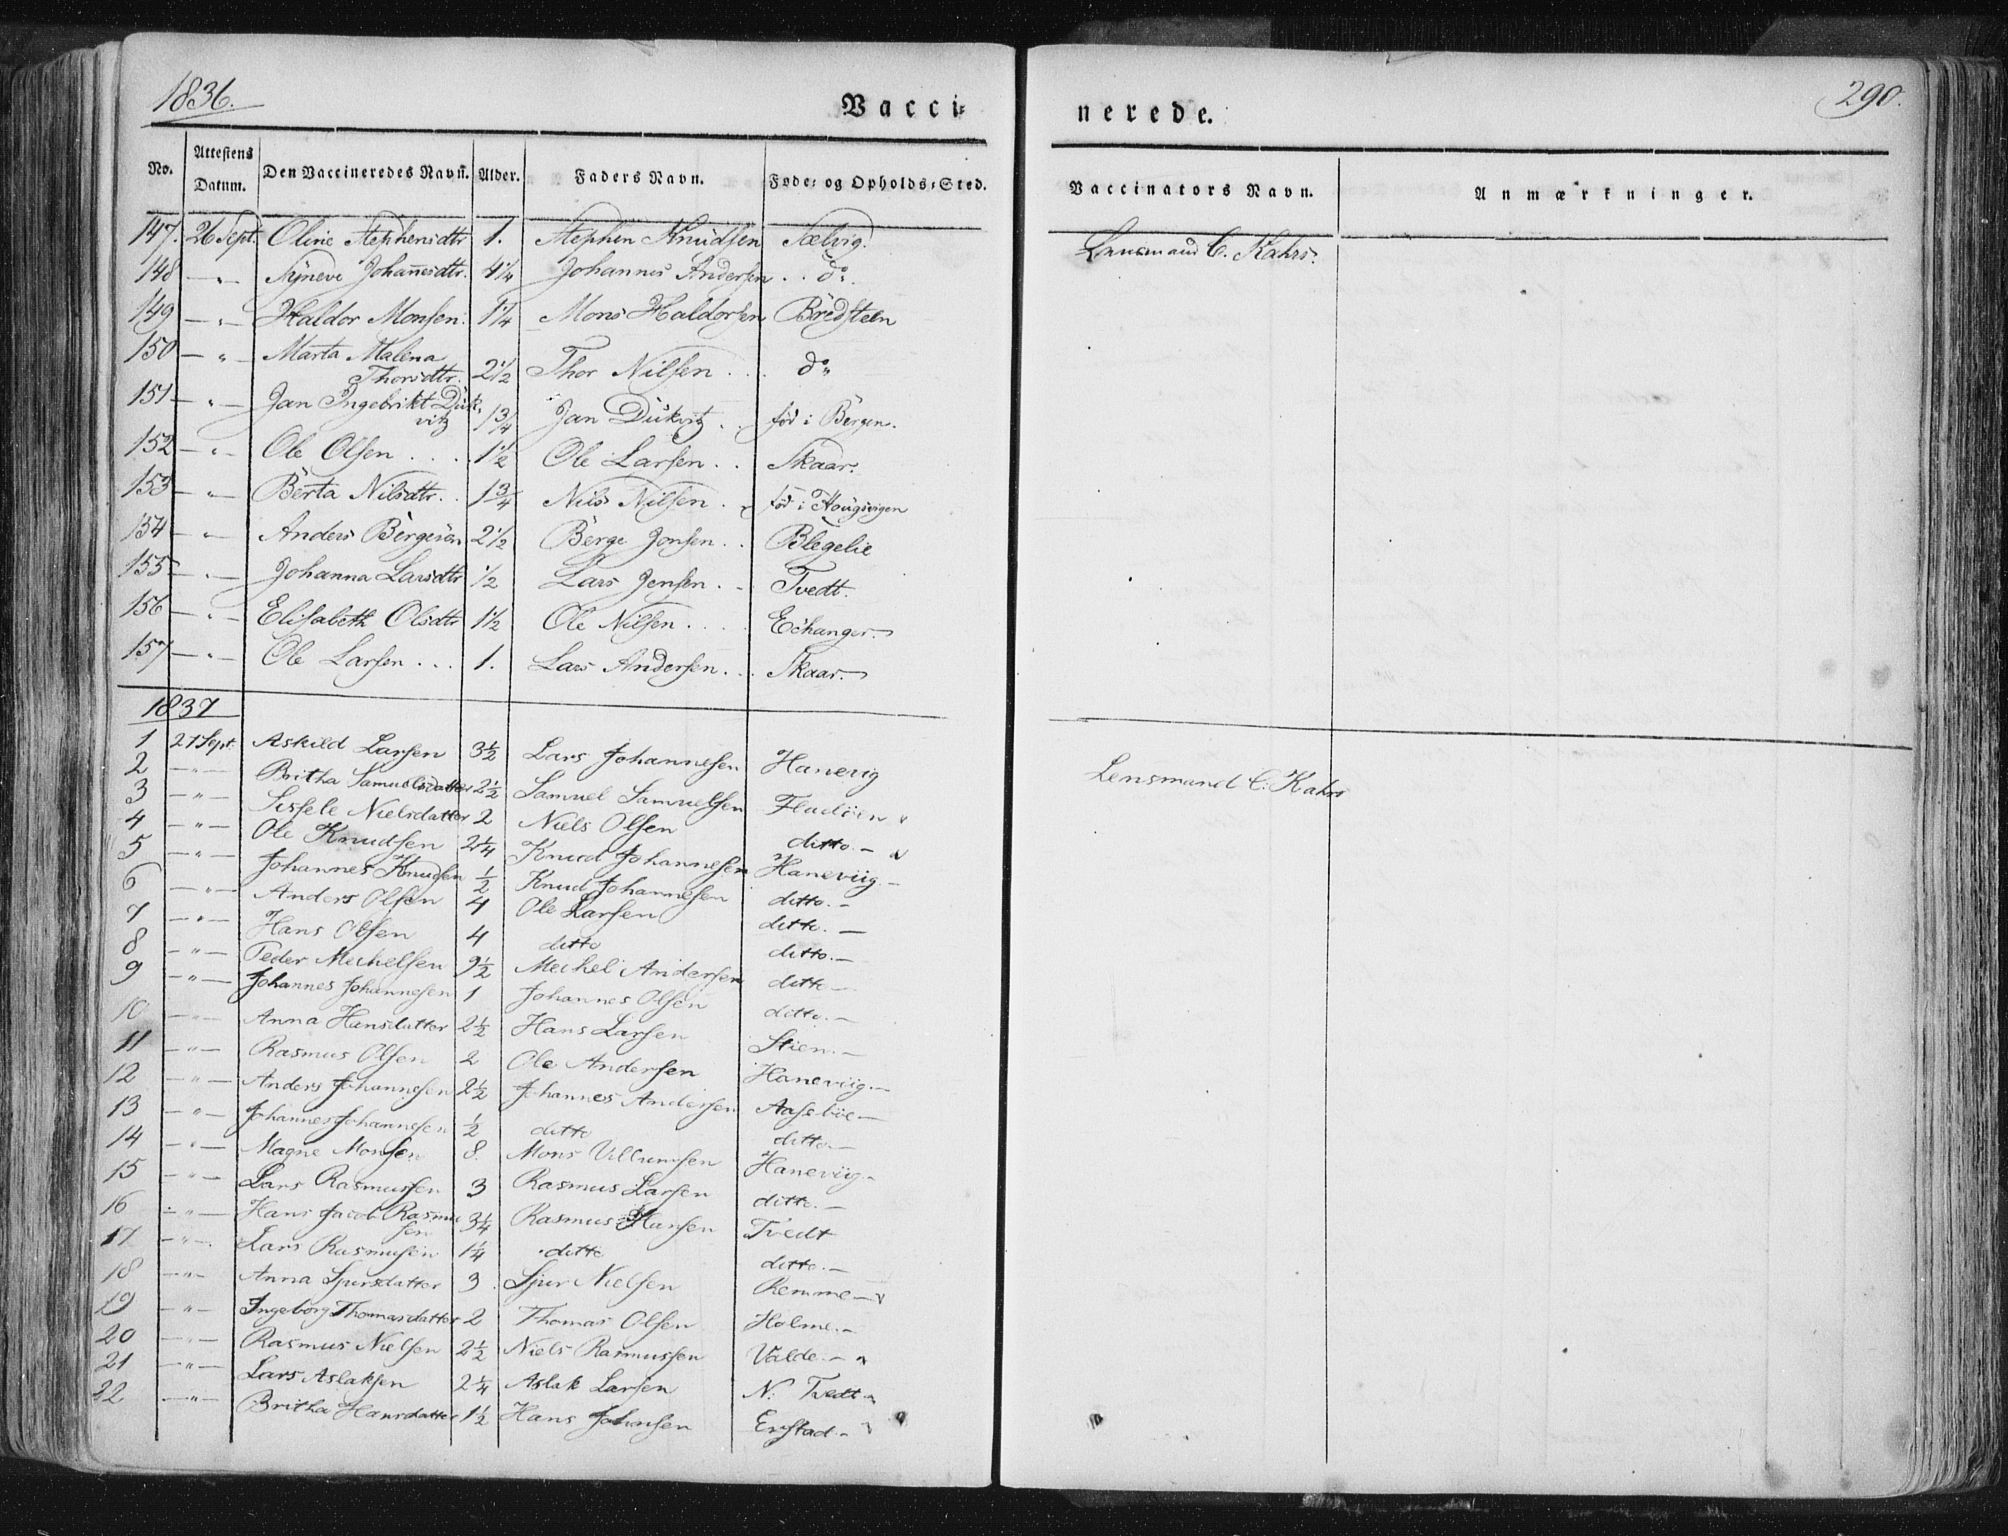 1836. Vacci- nerede. 290.
No. Attestens Datum. Den Vaccineredes Navn. Alder. Faders Navn. Føde- og Opholds-Sted. Vaccinators Navn. Anmærkninger.
147. 26 Sept. Oline Stephensdtr 1. Stephen Knudsen Sælvig. Lensmand C. Kahrs.
148 - " - Synevé Johannesdtr. 4 1/4 Johannes Andersen . . do.
149 - " - Haldor Monsen. 1 1/4 Mons Haldorsen Bredsteen
150 - " - Marta Malena
Thorsdtr. 2 1/2 Thor Nilsen . . . do
151 - " - Jan Ingebrikt Duk-
vitz 1 3/4 Jan Dukvitz . . fød i Bergen.
152 - " - Ole Olsen . . . . 1 1/2 Ole Larsen . . Skaar.
153 - " - Berta Nilsdtr. . 1 3/4 Nils Nilsen . . fød i Hougsvigen
154 - " - Anders Bergesøn 2 1/2 Berge Jonsen . . Blegelie
155 - " - Johanna Larsdtr 1/2 Lars Jensen . . Tvedt.
156 - " - Elisabeth Olsdtr 1 1/2 Ole Nilsen . . . . Echanger.
157 - " - Ole Larsen . . . 1. Lars Andersen . . . Skaar.
1837
1 21 Sept. Askild Larsen 3 1/2 Lars Johannesen Hanevig Lensmand C. Kahrs
2 - " - Britha Samuelsdatter 2 1/2 Samuel Samuelsen Fladöen "
3 - " - Sissele Nielsdatter 2 Niels Olsen ditto. - "
4 - " - Ole Knudsen 2 1/4 Knud Johannesen Haneviig -
5 - " - Johannes Knudsen 1/2 Knud Johannesen ditto. -
6 - " - Anders Olsen 4 Ole Larsen ditto. -
7 - " - Hans Olsen 4 ditto ditto. -
8 - " - Peder Mechelsen 9 1/2 Mechel Andersen ditto -
9 - " - Johannes Johannesen 1 Johannes Olsen ditto. -
10 - " - Anna Hansdatter 2 1/2 Hans Larsen Stien. -
11 - " - Rasmus Olsen 2 Ole Andersen Haneviig. -
12 - " - Anders Johannesen 2 1/2 Johannes Andersen Aaseböe -
13 - " - Johannes Johannesen 1/2 ditto ditto -
14 - " - Magne Monsen 8. Mons Villumsen Haneviig -
15 - " - Lars Rasmussen 3 Rasmus Larsen ditto. -
16 - " - Hans Jacob Rasmu
sen 3 1/4 Rasmus Hansen Tvedt
17 - " - Lars Rasmusen 1 1/4 ditto ditto. -
18 - " - Anna Sjursdatter 3. Sjur Nielsen Remme - "
19 - " - Ingeborg Thomasdatter 2 Thomas Olsen Holme. -
20 - " - Rasmus Nielsen 2 1/2 Niels Rasmussen Valde. - "
21 - " - Lars Aslaksen 2 1/4 Aslak Larsen N: Tvedt - "
22 - " - Britha Hansdatter 1 1/2 Hans Johnsen Erstad. - "